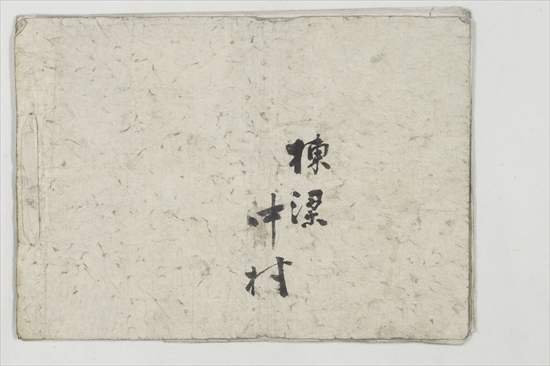 棟梁
中村